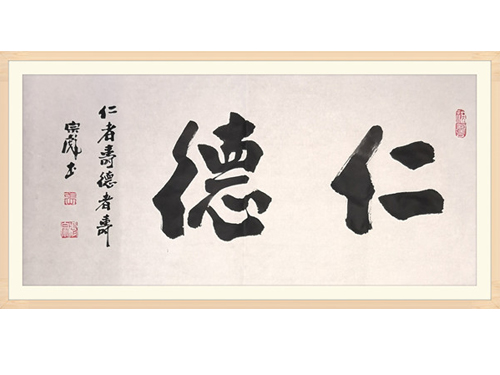 仁德
仁者壽德者壽
宗